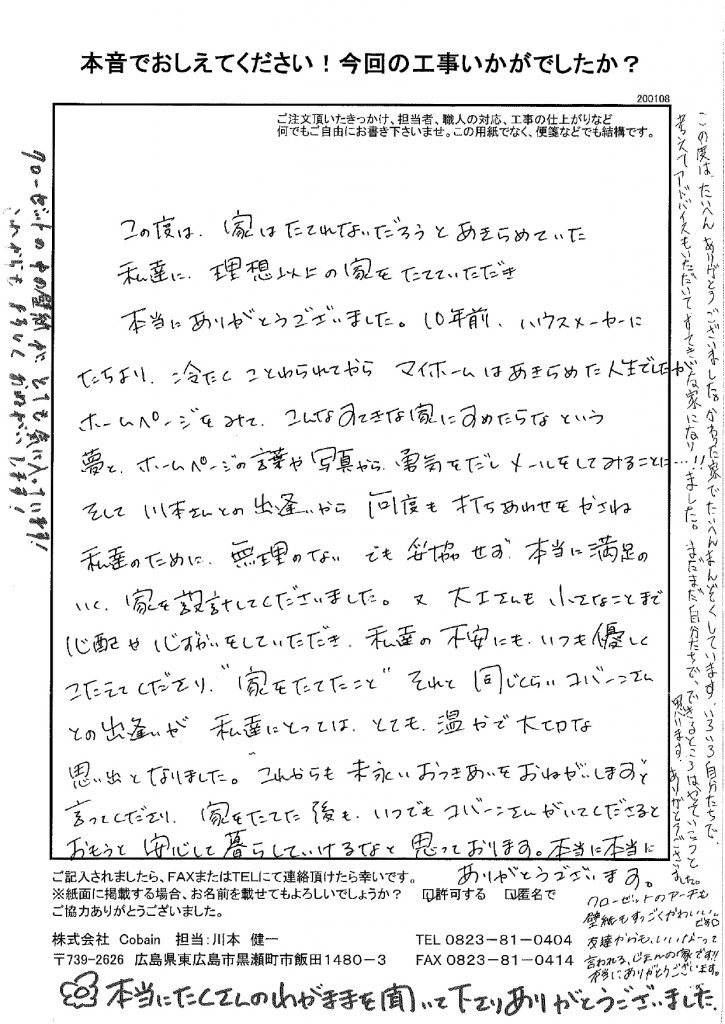 本音でおしえてください！今回の工事いかがでしたか？
200108
ご注文頂いたきっかけ、担当者、職人の対応、工事の仕上がりなど
何でもご自由にお書き下さいませ。この用紙でなく、便箋などでも結構です。
この度は、家はたてれないだろうとあきらめていた
私達に、理想以上の家をたてていただき
本当にありがとうございました。10年前、ハウスメーカーに
たちより、冷たくことわられてから マイホームはあきらめた人生でしたが
ホームページをみて、こんなすてきな家にすめたらな という
夢と、ホームページの言葉や写真から、勇気をだしメールをしてみることに…!!
そして川本さんとの出逢いから 何度も打ちあわせをかさね
私達のために、無理のない でも妥協せず 本当に満足の
いく、家を設計してくださいました。又 大工さんも小さなことまで
心配や心ずかいをしていただき、私達の不安にも、いつも優しく
こたえてくださり、"家をたてたこと" それと同じくらいコバーンさん
との出逢いが 私達にとっては、とても、温かで大切な
思い出となりました。"これからも末永いおつきあいをおねがいします"と
言ってくださり、家をたてた後も、いつでもコバーンさんがいてくださると
おもうと 安心して暮らしていけるなと思っております。本当に本当に
ありがとうございます。
この度は、たいへんありがとうございました。かわった家でたいへんまんぞくしています。いろいろ自分たちで、
考えてアドバイスもいただいてすてきな家になりました。まだまだ自分たちで、できるところはやっていこうと
思います。ありがとうございました。
クローゼットの中の壁紙がとても気に入っています！
これからもよろしくおねがいします！
ご記入されましたら、FAXまたはTELにて連絡頂けたら幸いです。
※紙面に掲載する場合、お名前を載せてもよろしいでしょうか？ □許可する □匿名で
ご協力ありがとうございました。
クローゼットのアーチも
壁紙もすっごくかわいい。
友達からも、いいなーって
言われる、じまんの家です!!
本当にありがとうございます。
株式会社 Cobain 担当：川本 健一 TEL 0823-81-0404
〒739-2626 広島県東広島市黒瀬町市飯田1480-3 FAX 0823-81-0414
本当にたくさんのわがままを聞いて下さりありがとうございました。